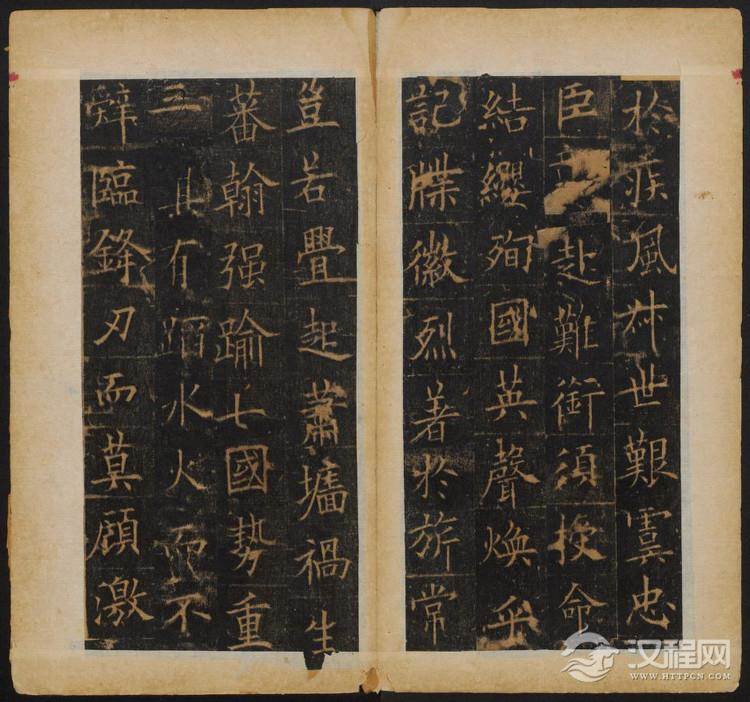 於疾風叔世艱虞忠
臣赴難銜須授命
結纓殉國英聲煥乎
記牒徽烈著於旂常
豈若舋起蕭墻禍生
蕃翰强踰七國勢重
三其有蹈水火而不
辝臨鋒刃而莫顧激
汉程网
WWW.HTTPCN.COM